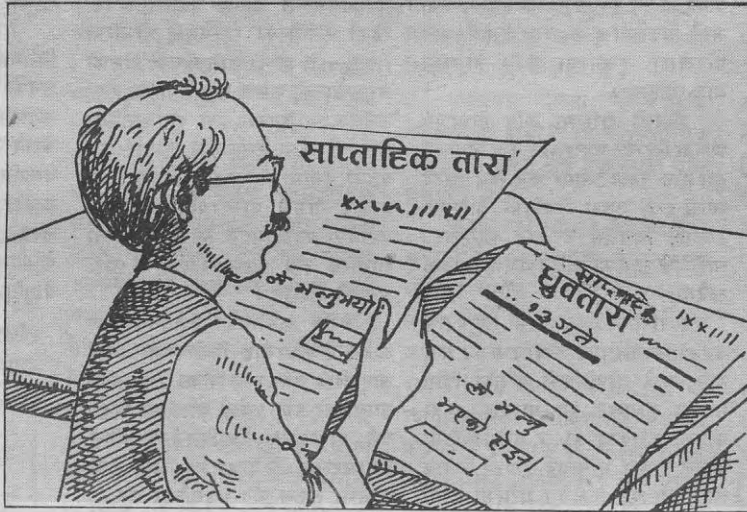 साप्ताहिक तारा
ले भन्नुभयो
साप्ताहिक
ध्रुवतारा
... १३ गते
ले भन्नु
भएको होइन।